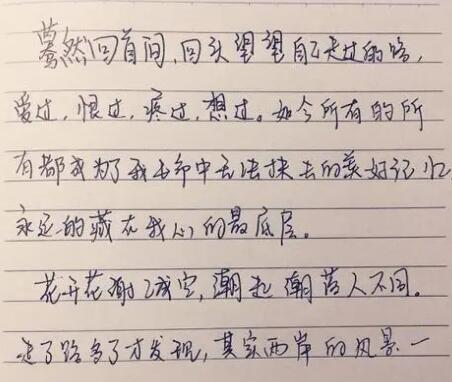 蓦然回首间,回头望望自己走过的路,
爱过,恨过,疼过,想过。如今所有的所
有都成为了我生命中无法抹去的美好记忆
永远的藏在我心的最底层。
花开花谢已成空,潮起潮落人不同。
走了路多了才发现,其实两岸的风景一